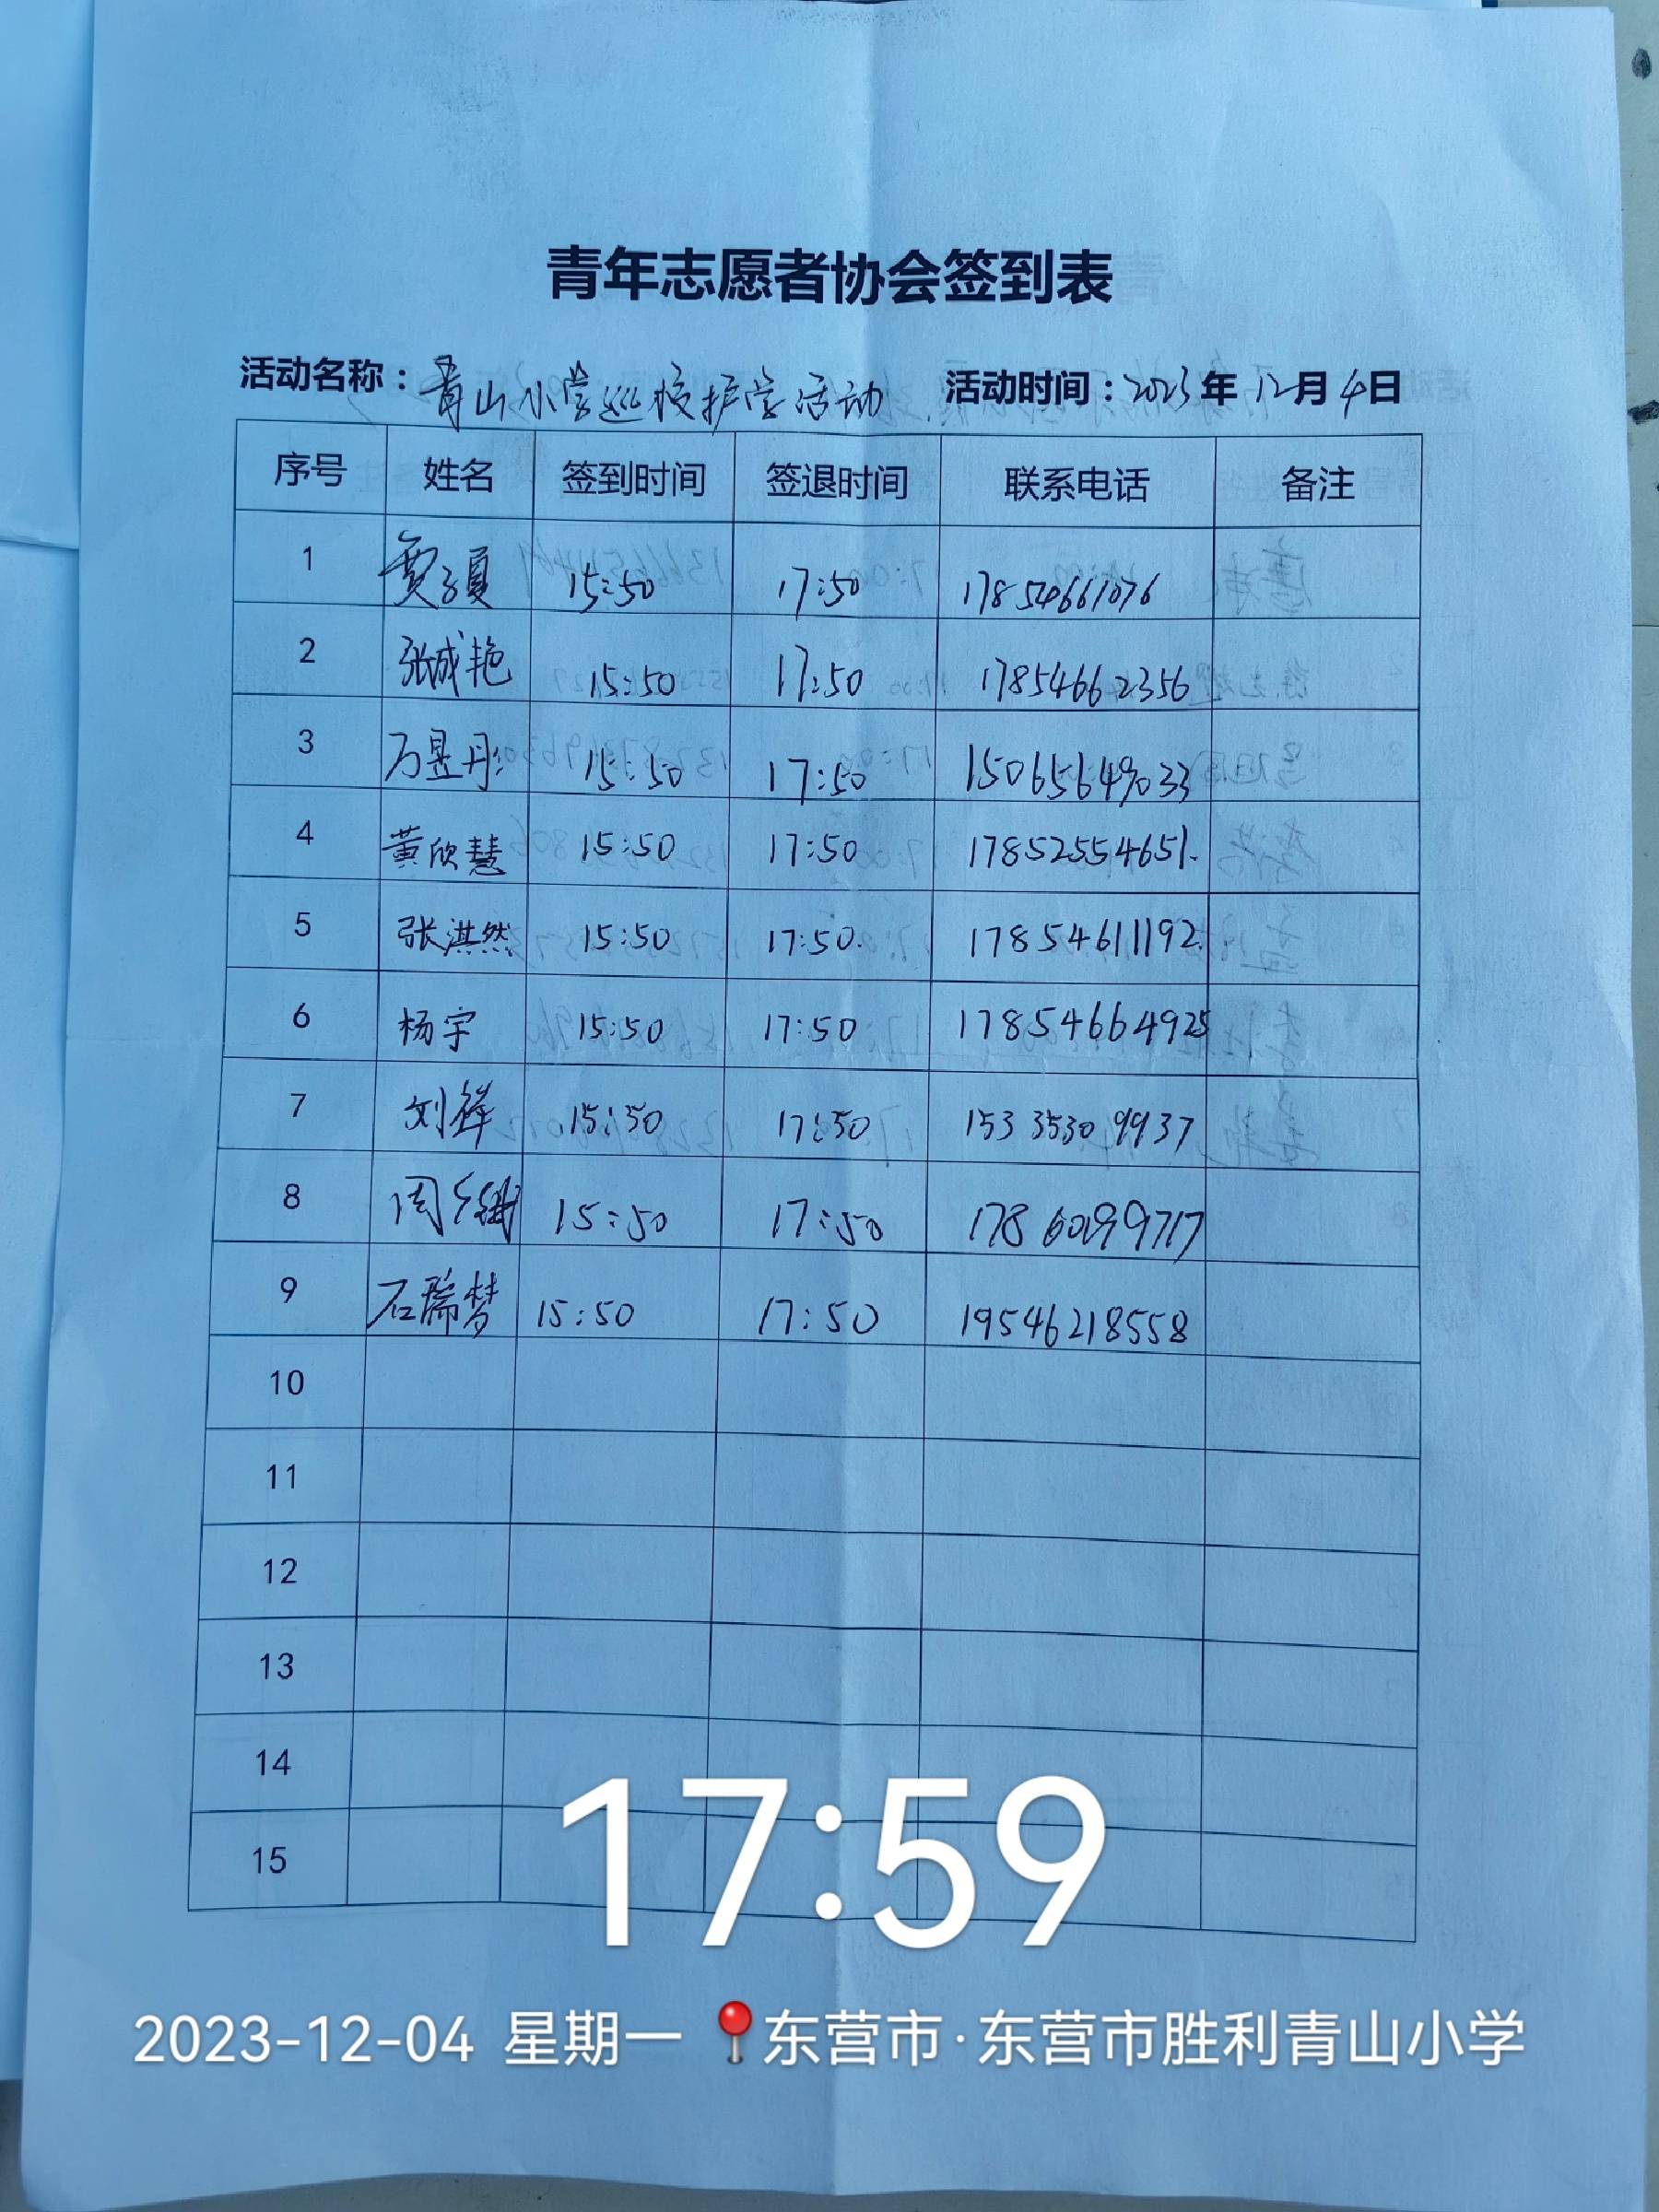 青年志愿者协会签到表
活动名称：青山小学巡校护学活动 活动时间：2023年12月4日
序号 姓名 签到时间 签退时间 联系电话 备注
1 贾子夏 15:50 17:50 17854661076
2 张诚艳 15:50 17:50 17854662356
3 万昱彤 15:50 17:50 15065649033
4 黄欣慧 15:50 17:50 17852554651.
5 张淇然 15:50 17:50. 17854611192.
6 杨宇 15:50 17:50 17854664925
7 刘祥 15:50 17:50 153 3530 9937
8 周 15:50 17:50
9 石瑞梦 15:50 17:50 19546218558
10
11
12
13
14
15
17:59
2023-12-04 星期一 东营市·东营市胜利青山小学